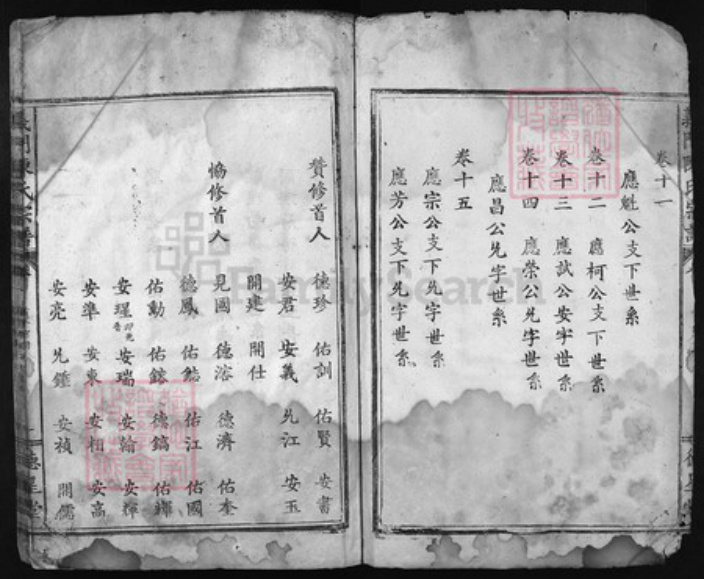 卷十一
應魁公支下世系
卷十二 應柯公支下世系
卷十三 應試公安字世系
卷十四 應榮公允字世系
應昌公允字世系
卷十五
應宗公支下允字世系
應芳公支下允字世系
贊修首人 德珍 佑訓 佑賢 安書
安君 安義 允江 安玉
開建 開仕
協修首人 見國 德溶 德濟 佑奎
德鳳 佑能 佑江 佑國
佑勳 佑鎔 德鎬 佑輝
安瑆 安瑞 安翰 安輝
安準 安東 安相 安高
安亮 允鍾 安禎 開儒
義門陳氏宗譜
德星堂
FamilySearch